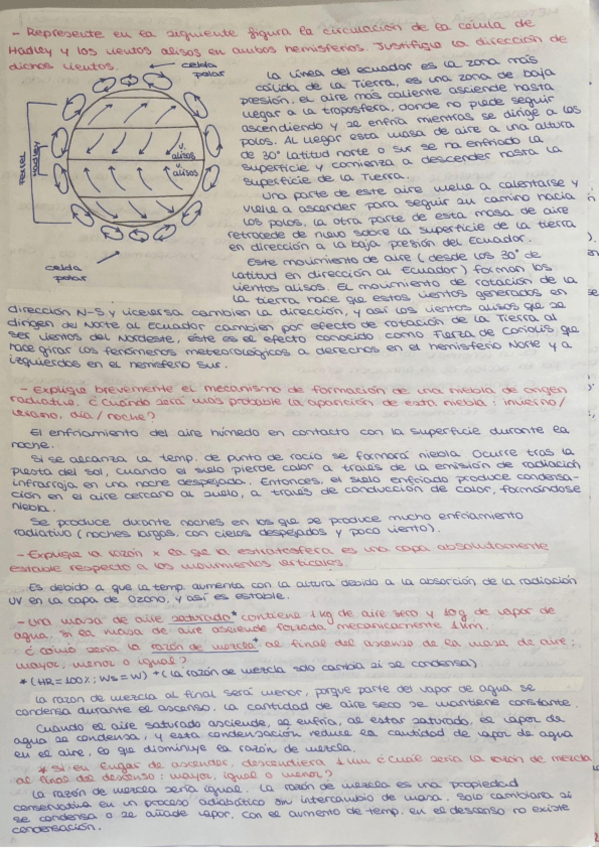 - Represente en la siguiente figura la circulación de la célula de
Hadley y los vientos alisos en ambos hemisferios. Justifique la dirección de
dichos vientos.
celda
polar
Ferrel
Hadley
v.
alisos
v.
alisos
celda
polar
La línea del ecuador es la zona más
cálida de la Tierra, es una zona de baja
presión, el aire más caliente asciende hasta
llegar a la troposfera, donde no puede seguir
ascendiendo y se enfría mientras se dirige a los
polos. Al llegar esta masa de aire a una altura
de 30° latitud norte o sur se ha enfriado la
superficie y comienza a descender hasta la
superficie de la Tierra.
Una parte de este aire vuelve a calentarse y
vuelve a ascender para seguir su camino hacia
los polos, la otra parte de esta masa de aire
retrocede de nuevo sobre la superficie de la tierra
en dirección a la baja presión del Ecuador.
Este movimiento de aire (desde los 30° de
latitud en dirección al Ecuador) forman los
vientos alisos. El movimiento de rotación de la
la tierra hace que estos vientos generados en
dirección N-S y viceversa cambien la dirección, y así los vientos alisos que se
dirigen del Norte al Ecuador cambien por efecto de rotación de la Tierra al
ser vientos del Nordeste, este es el efecto conocido como Fuerza de Coriolis, que
hace girar los fenómenos meteorológicos a derechos en el hemisferio Norte y a
izquierdos en el hemisferio Sur.
- Explique brevemente el mecanismo de formación de una niebla de origen
radiativo. ¿Cuándo será más probable la aparición de esta niebla: invierno/
verano, día/noche?
El enfriamiento del aire húmedo en contacto con la superficie durante la
noche.
Si se alcanza la temp. de punto de rocío se formará niebla. Ocurre tras la
puesta del sol, cuando el suelo pierde calor a través de la emisión de radiación
infrarroja en una noche despejada. Entonces, el suelo enfriado produce condensa-
ción en el aire cercano al suelo, a través de conducción de calor, formándose
niebla.
Se produce durante noches en los que se produce mucho enfriamiento
radiativo (noches largas, con cielos despejados y poco viento).
- Explique la razón x la que la estratosfera es una capa absolutamente
estable respecto a los movimientos verticales.
Es debido a que la temp. aumenta con la altura debido a la absorción de la radiación
UV en la capa de Ozono, y así es estable.
- Una masa de aire saturado* contiene 1 kg de aire seco y 10g de vapor de
agua. Si la masa de aire asciende forzada mecánicamente 1km.
¿Cómo sería la razón de mezcla* al final del ascenso de la masa de aire:
mayor, menor o igual?
*(HR=100%; Ws=W) *(La razón de mezcla solo cambia si se condensa)
La razón de mezcla al final será menor, porque parte del vapor de agua se
condensa durante el ascenso. La cantidad de aire seco se mantiene constante.
Cuando el aire saturado asciende, se enfría, al estar saturado, el vapor de
agua se condensa, y esta condensación reduce la cantidad de vapor de agua
en el aire, lo que disminuye la razón de mezcla.
* Si en lugar de ascender, descendiera 1 km ¿Cuál sería la razón de mezcla
al final del descenso: mayor, igual o menor?
La razón de mezcla sería igual. La razón de mezcla es una propiedad
conservativa en un proceso adiabático sin intercambio de masa. Solo cambiará si
se condensa o se añade vapor, con el aumento de temp. en el descenso no existe
condensación.